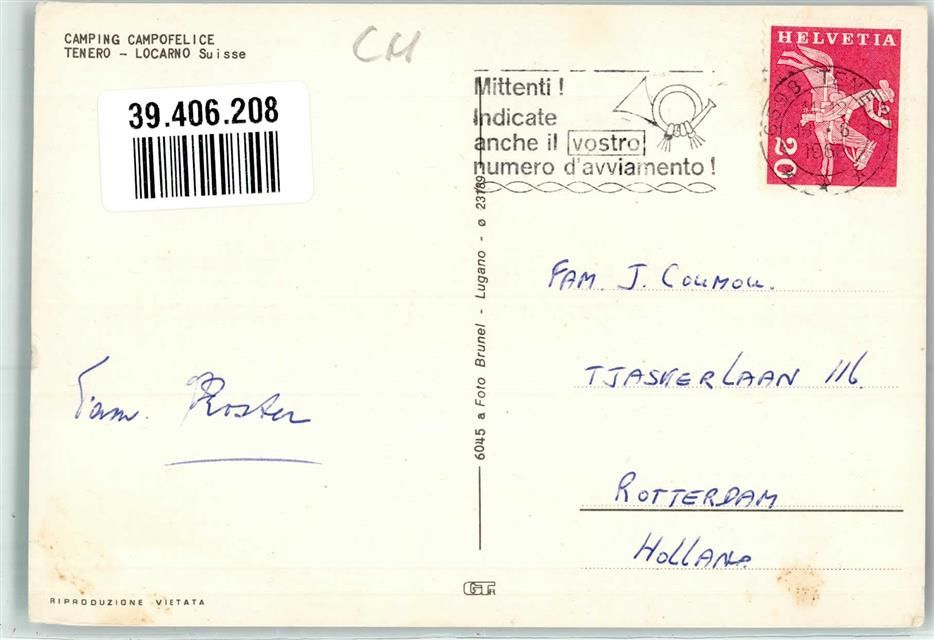 CAMPING CAMPOFELICE
TENERO - LOCARNO Suisse
CH
39.406.208
Mittenti !
Indicate
anche il vostro
numero d'avviamento !
HELVETIA
20
6598 TENERO
6045 a Foto Brunel - Lugano - ø 23189
FAM. J. COUMOU.
TJASKERLAAN 116
ROTTERDAM
HOLLAND
Fam. Koster
RIPRODUZIONE VIETATA